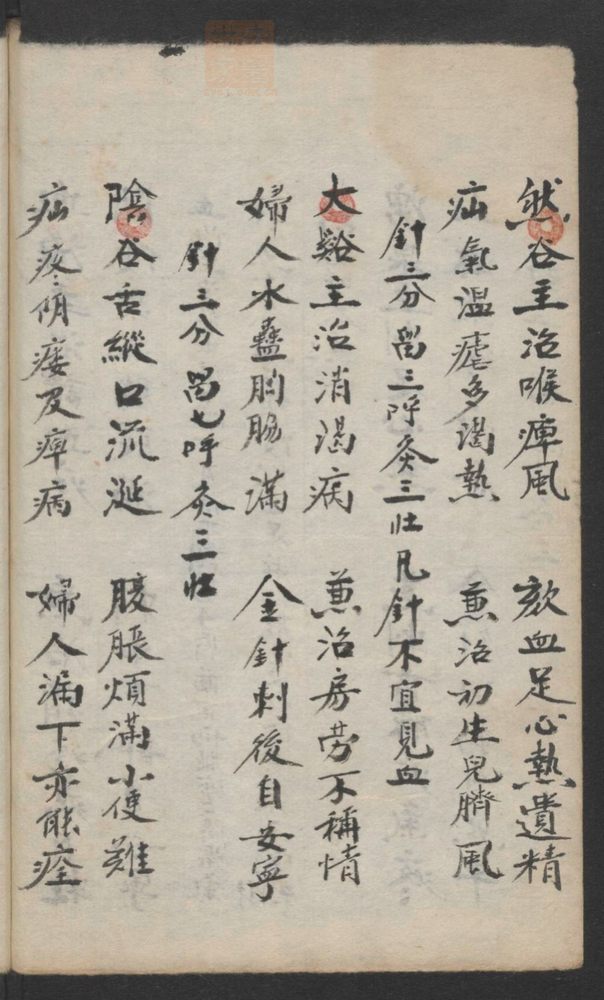 然谷主治喉痺風　欬血足心熱遺精
疝氣溫瘧多渴熱　兼治初生兒臍風
針三分畄三呼灸三壯凡針不宜見血
大谿主治消渴病　兼治房劳不稱情
婦人水蠱胸脇滿　金針刺後自安寧
針三分畄七呼灸三壯
陰谷舌縱口流涎　腹脹煩滿小便難
疝疼阴痿及痺病　婦人漏下亦能痊